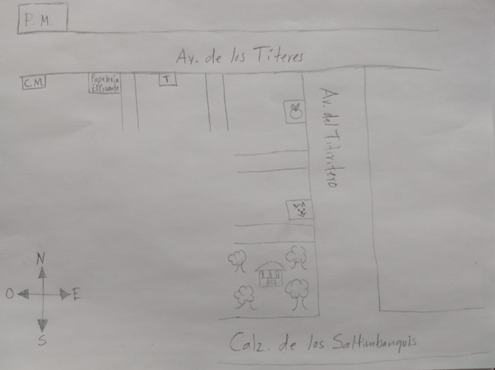 P.M.
Av. de los Títeres
C.M
Papelería
El Gigante
T
Av. del Titiritero
N
O
E
S
Calz. de los Saltimbanquis